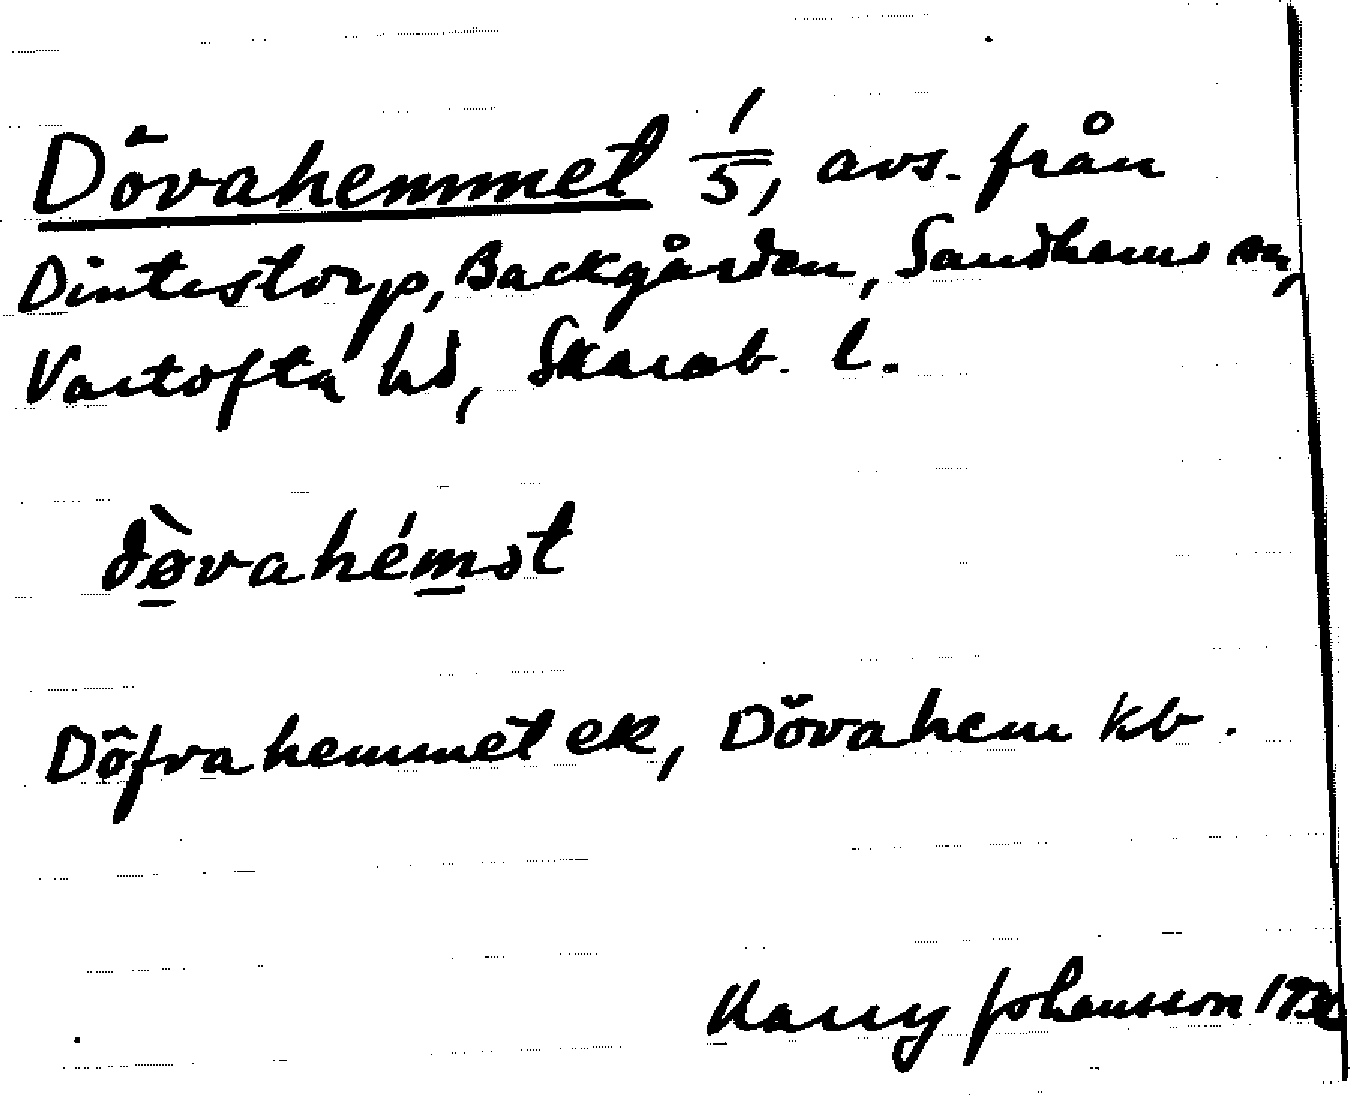 Dövahemmet 1/5, avs. från
Dintestorp, Backgården, Sandhems sn,
Vartofta hd, Skarab. l.
dø̱̀vahém̱ət
Döfvahemmet ek, Dövahem kb.
Harry Johansson